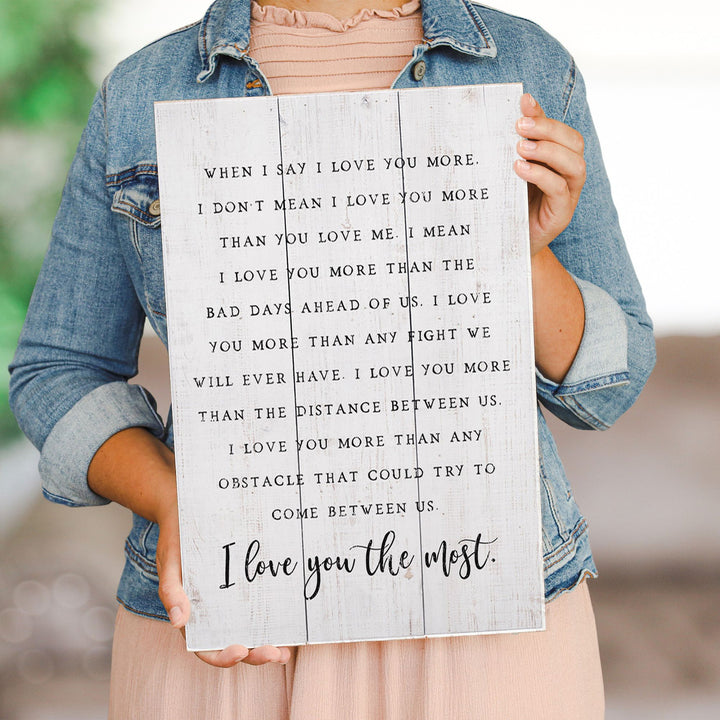 WHEN I SAY I LOVE YOU MORE,
I DON'T MEAN I LOVE YOU MORE
THAN YOU LOVE ME. I MEAN
I LOVE YOU MORE THAN THE
BAD DAYS AHEAD OF US. I LOVE
YOU MORE THAN ANY FIGHT WE
WILL EVER HAVE. I LOVE YOU MORE
THAN THE DISTANCE BETWEEN US.
I LOVE YOU MORE THAN ANY
OBSTACLE THAT COULD TRY TO
COME BETWEEN US.
I love you the most.